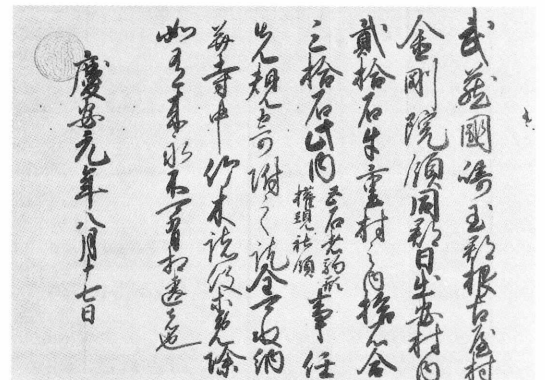 武蔵國埼玉郡根古屋村
金剛院領同郡日出安村内
貳拾石牛重村之内拾石合
三拾石此内五石者駒形権現社領事任
先規寄附之訖全可収納
并寺中竹木諸役等免除
如有来永不可有相違者也
慶安元年八月十七日